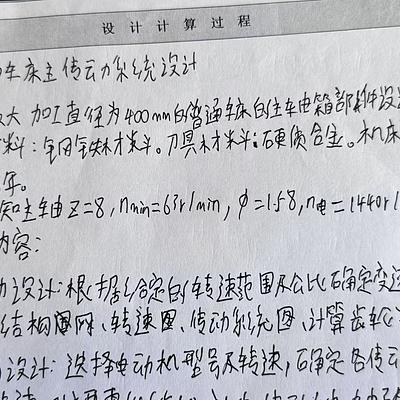 设计计算过程
车床主传动系统设计
大加工直径为400mm的普通车床的主轴箱部件设
料:钢铁材料。刀具材料:硬质合金。机床
年。
知主轴Z=8,nmin=63r/min,φ=1.58,n电=1440r/
内容:
设计:根据给定的转速范围及公比确定变速
结构网、转速图、传动系统图、计算齿轮
设计:选择电动机型号及转速,确定各传动